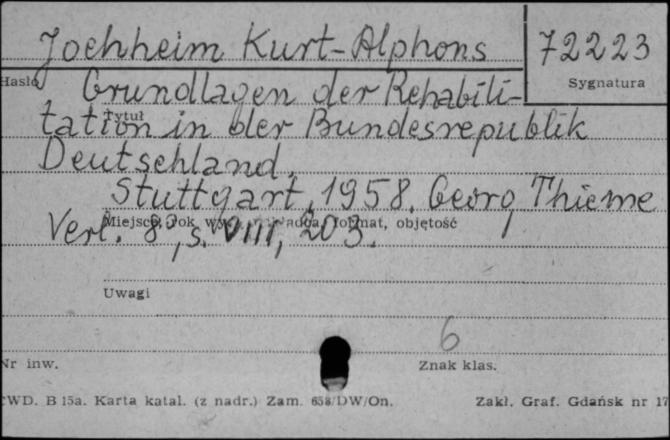 Jochheim Kurt-Alphons 72223
Hasło Sygnatura
Grundlagen der Rehabili-
Tytuł
tation in der Bundesrepublik
Deutschland.
Stuttgart, 1958. Georg Thieme
Miejsce, rok wyd., format, objętość
Verl. 8°, s. VIII, 203.
Uwagi
6
Nr inw. Znak klas.
CWD. B 15a. Karta katal. (z nadr.) Zam. 658/DW/On. Zakł. Graf. Gdańsk nr 17